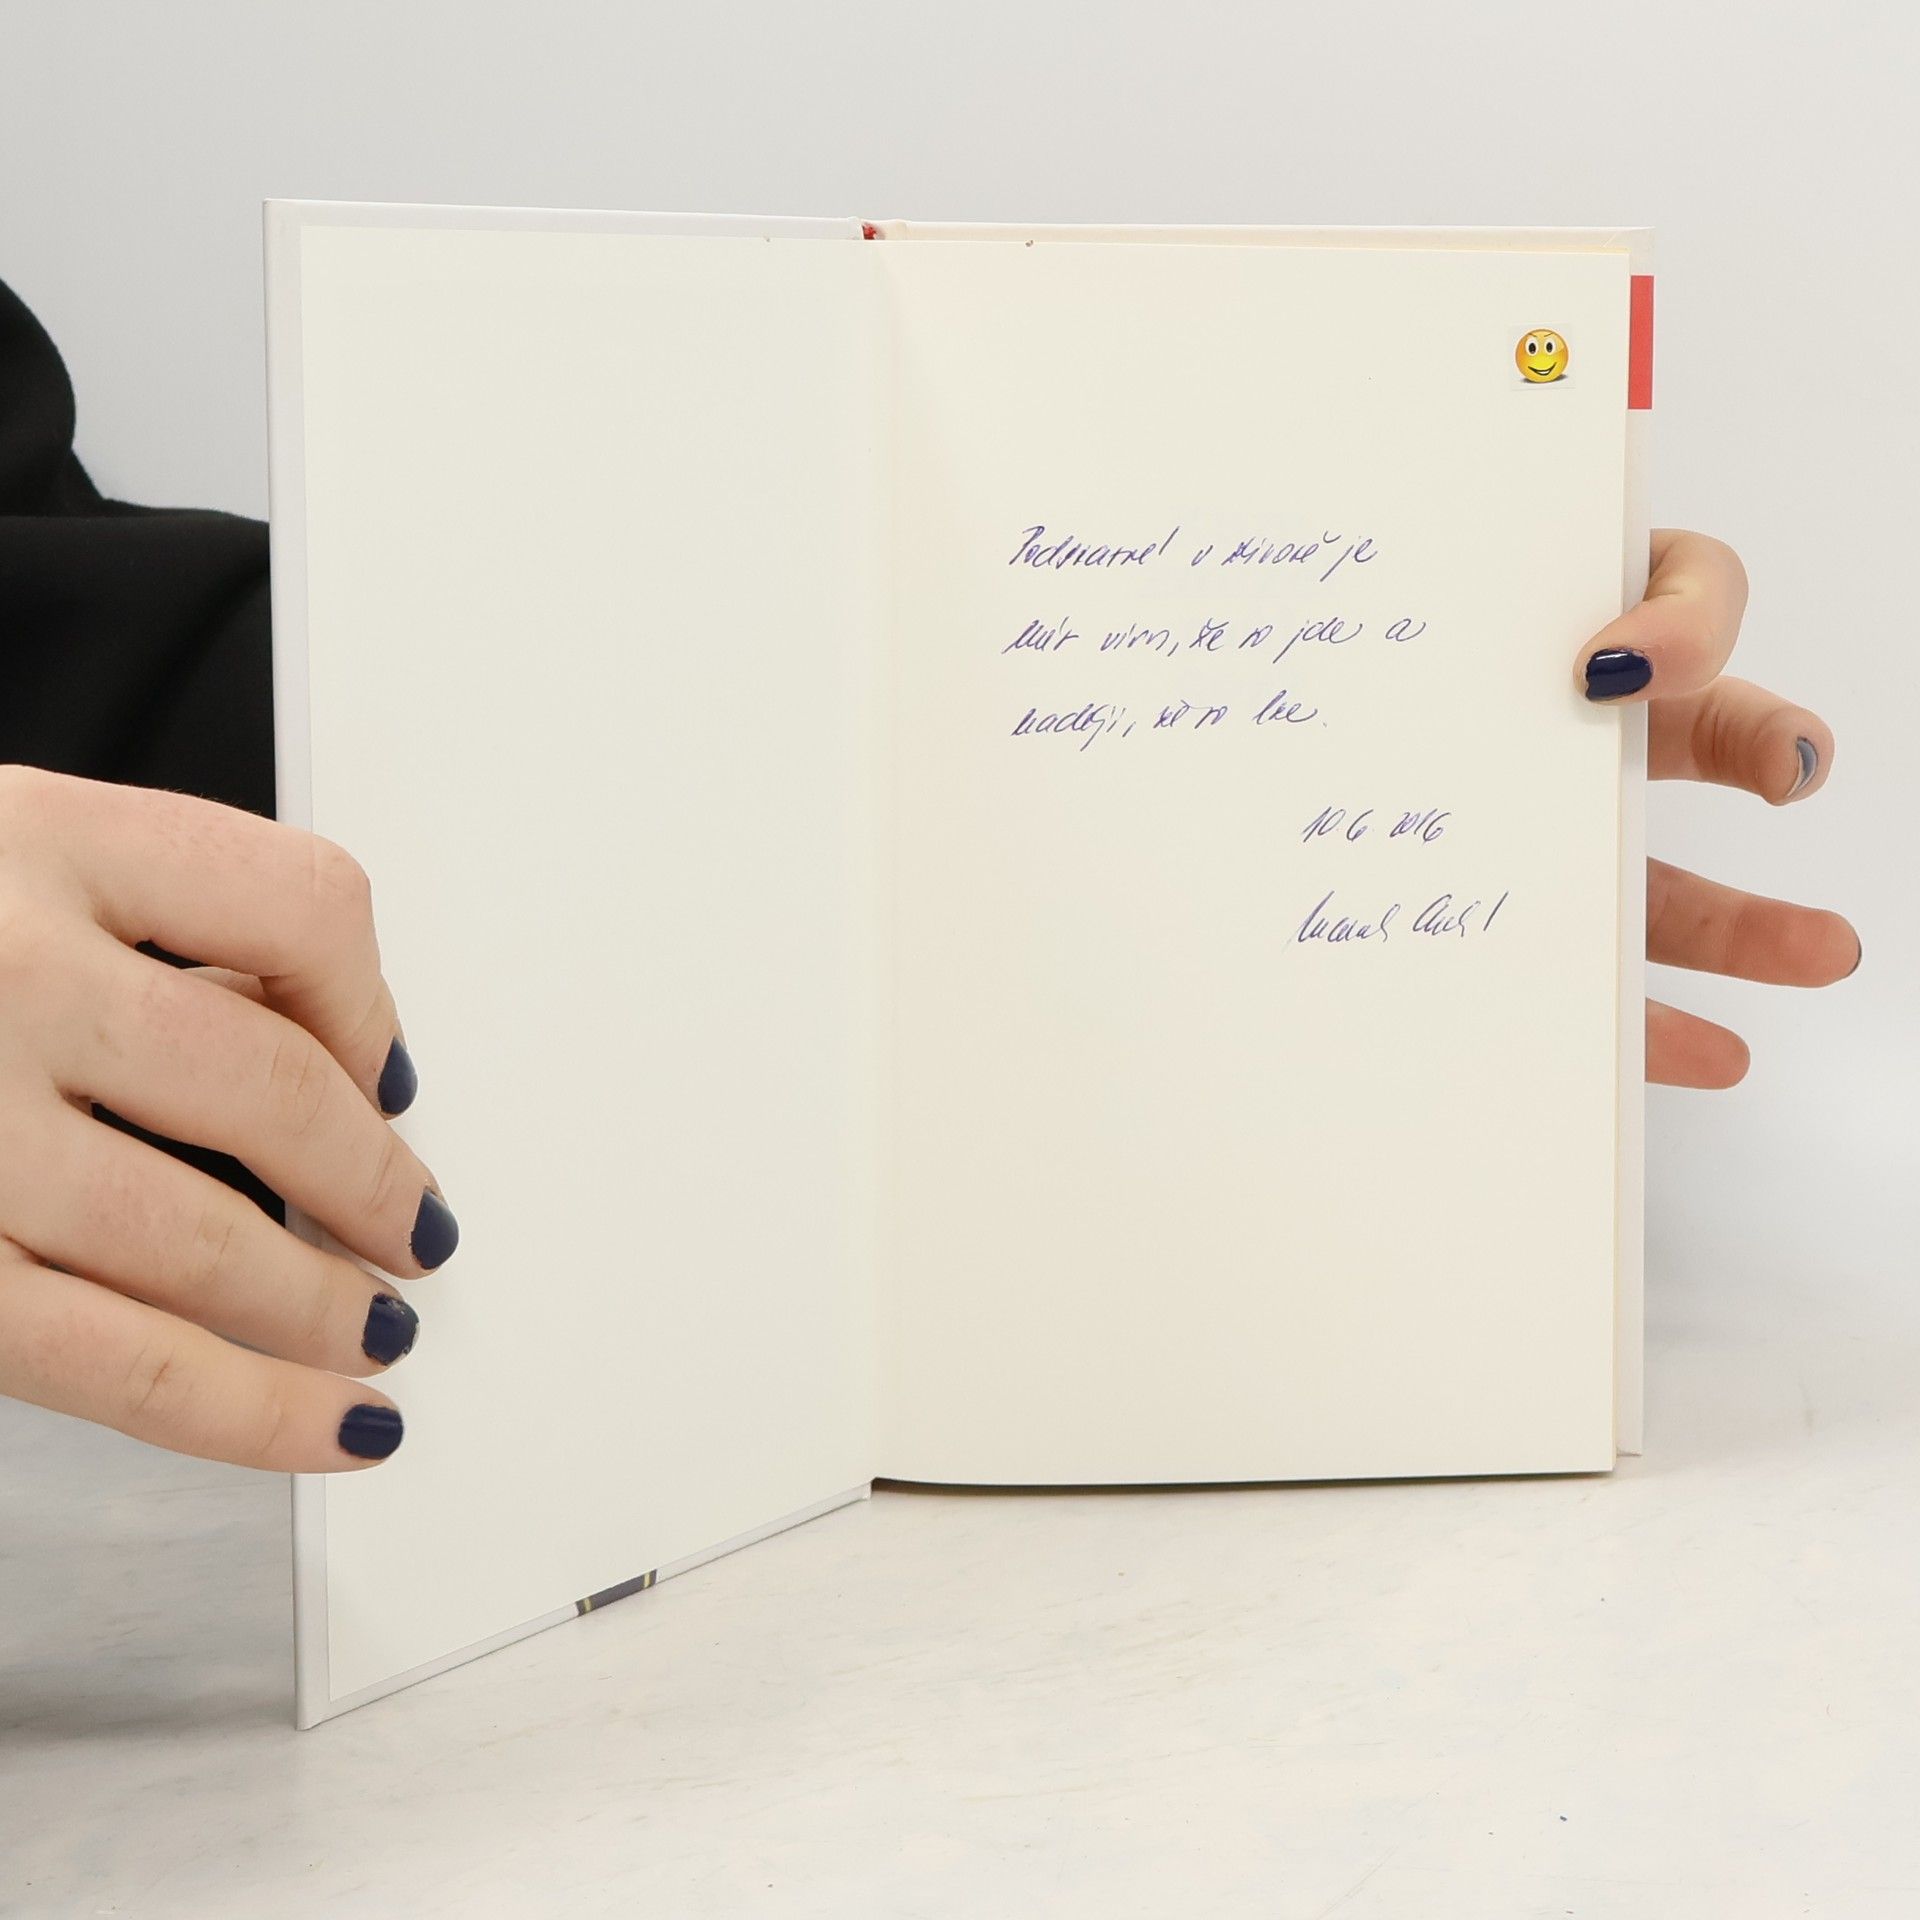 Podstatné v životě je
mít víru, že to jde a
naději, že to lze.
10.6.2016